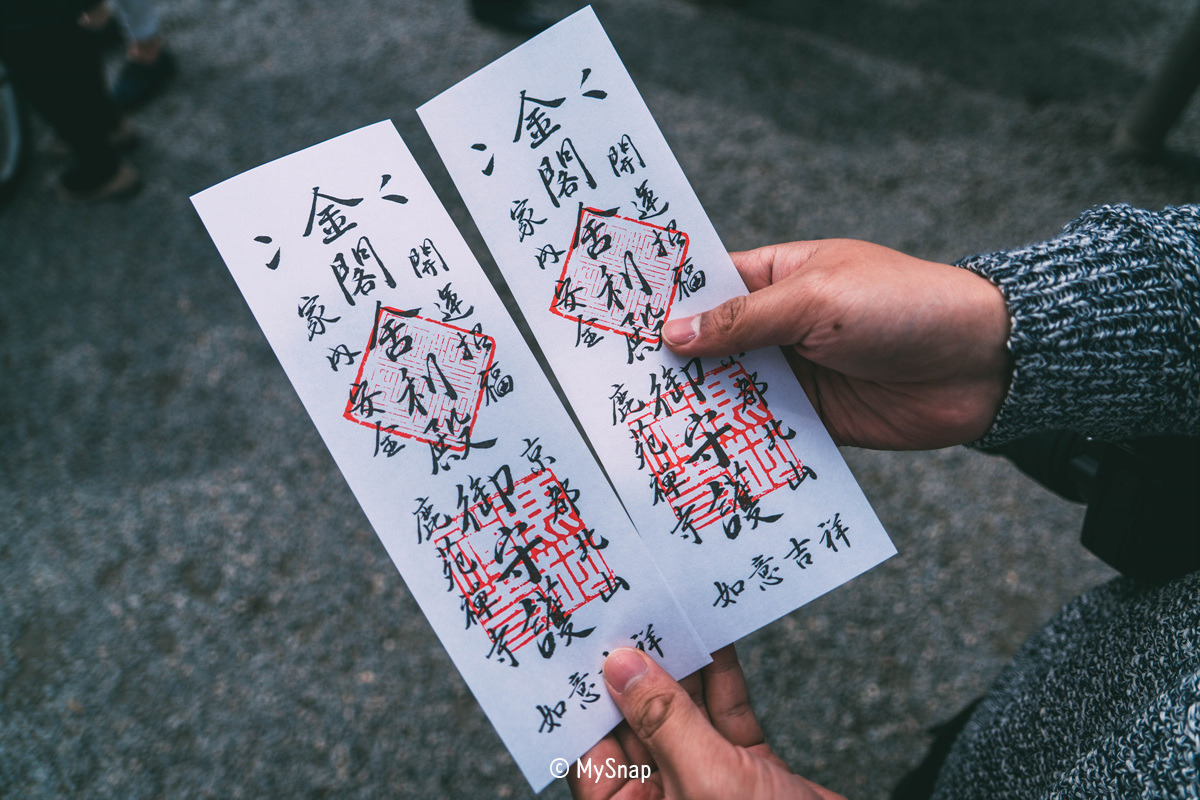 金閣舎利殿御守護
開運招福
家内安全
京都北山
鹿苑禅寺
如意吉祥
金閣舎利殿御守護
開運招福
家内安全
都北山
鹿苑禅寺
如意吉祥
© MySnap